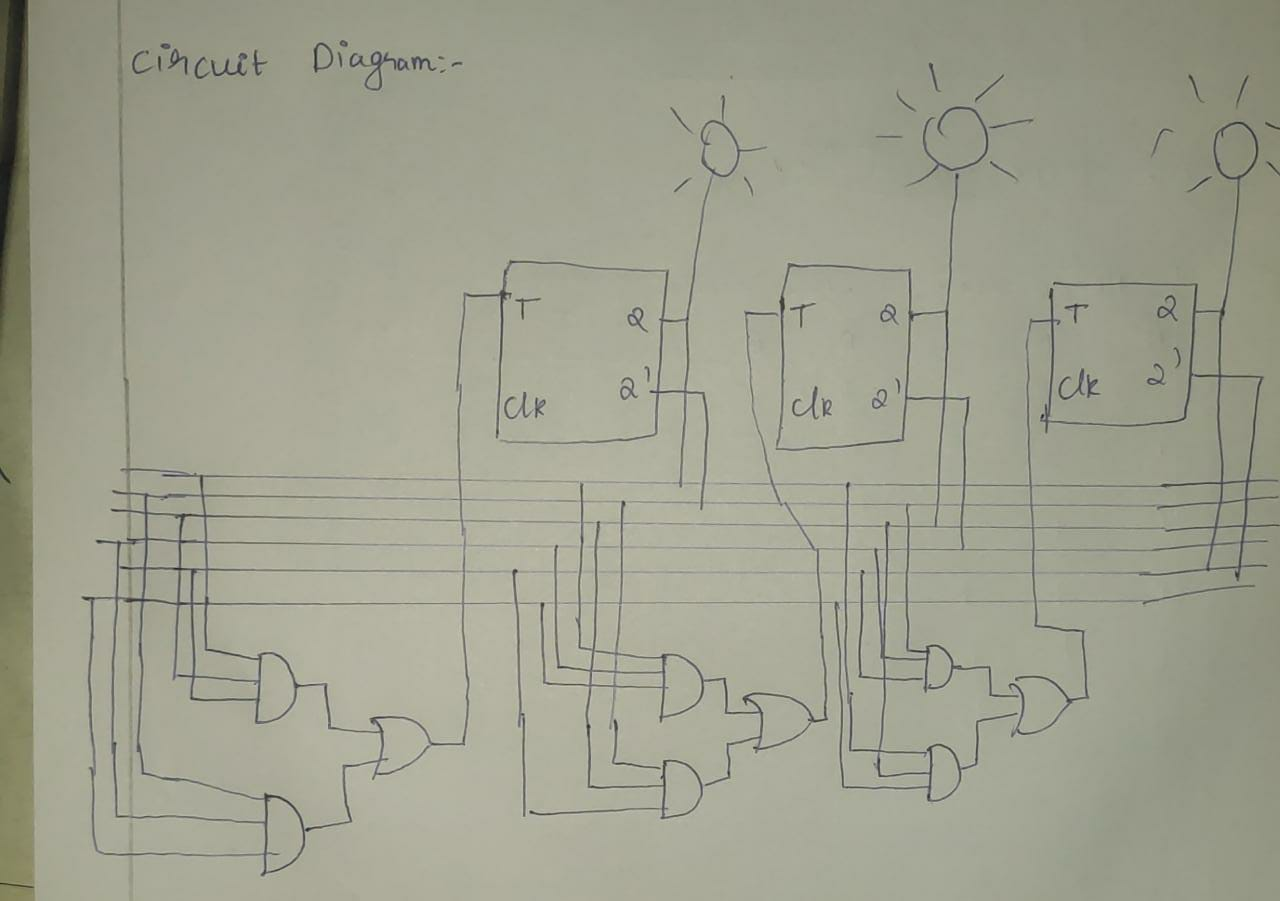 Circuit Diagram:-
T Q
Clk Q'
T Q
Clk Q'
T Q
Clk Q'